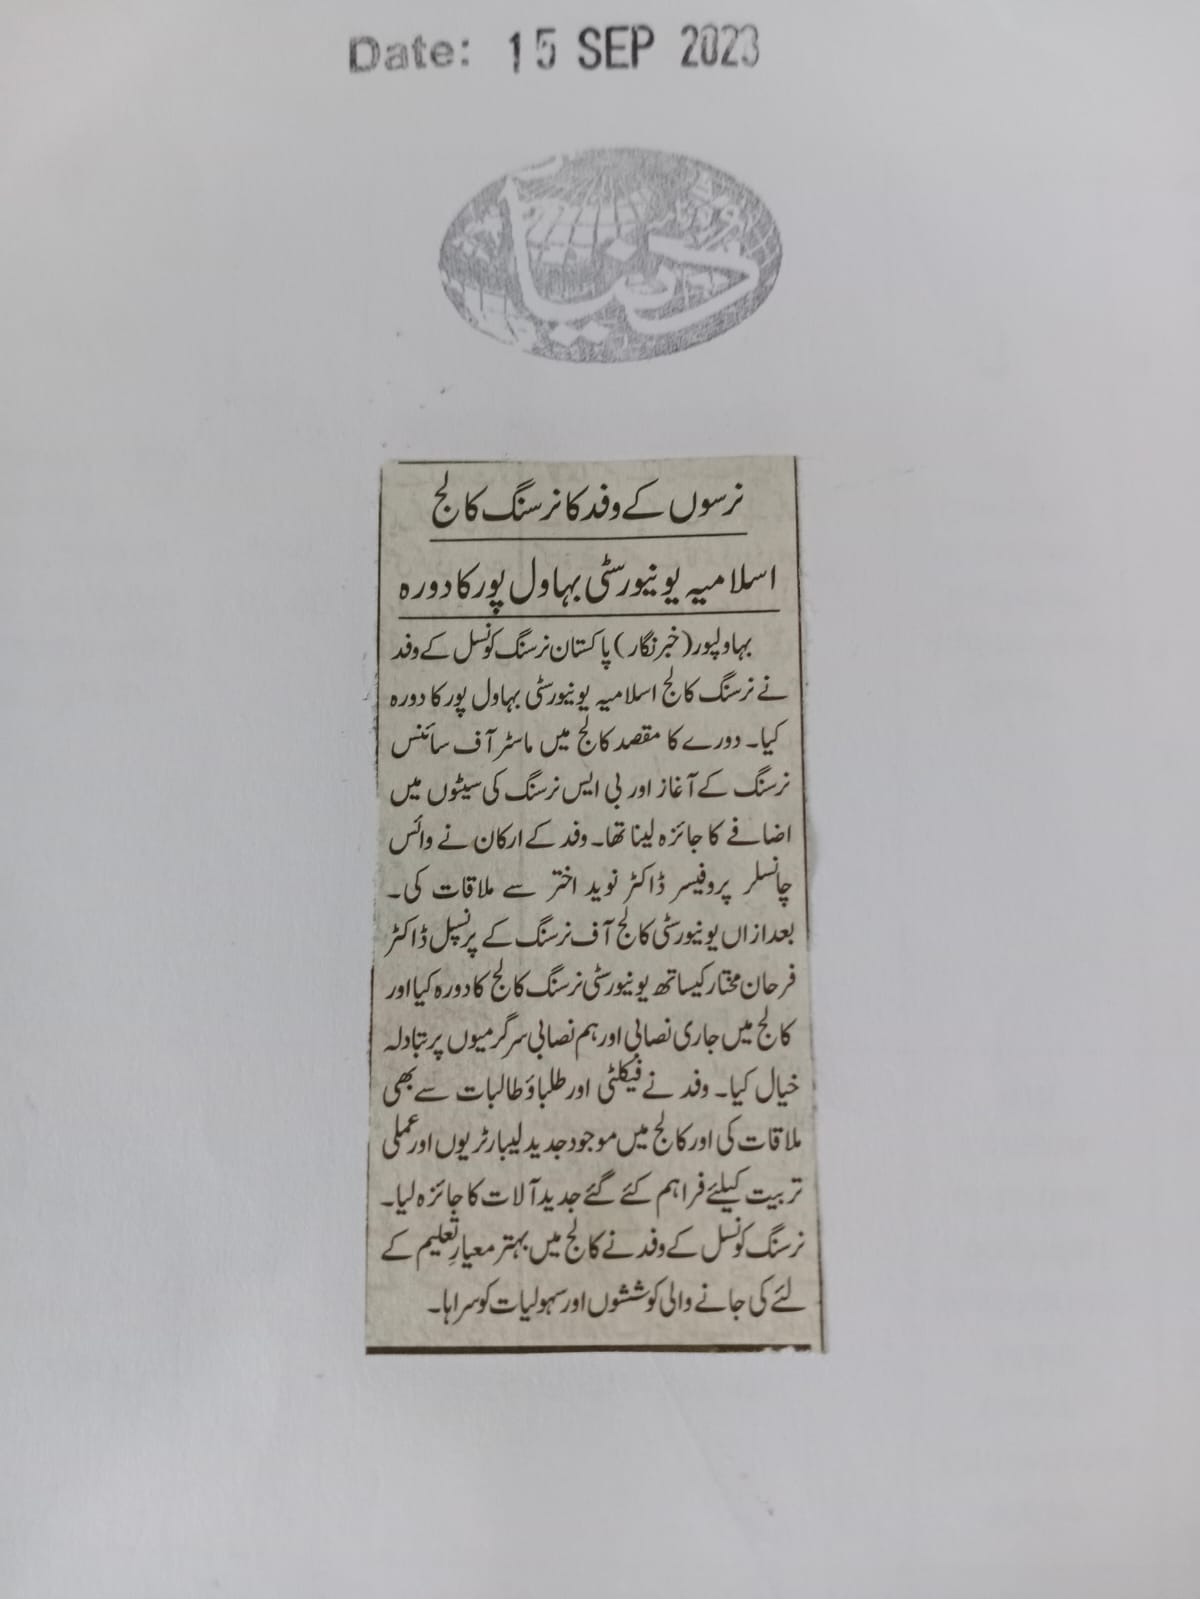 Date: 15 SEP 2023
روزنامہ
دنیا
نرسوں کے وفد کا نرسنگ کالج
اسلامیہ یونیورسٹی بہاول پور کا دورہ
بہاولپور (خبر نگار) پاکستان نرسنگ کونسل کے وفد
نے نرسنگ کالج اسلامیہ یونیورسٹی بہاول پور کا دورہ
کیا۔ دورے کا مقصد کالج میں ماسٹر آف سائنس
نرسنگ کے آغاز اور بی ایس نرسنگ کی سیٹوں میں
اضافے کا جائزہ لینا تھا۔ وفد کے ارکان نے وائس
چانسلر پروفیسر ڈاکٹر نوید اختر سے ملاقات کی۔
بعدازاں یونیورسٹی کالج آف نرسنگ کے پرنسپل ڈاکٹر
فرحان مختار کیساتھ یونیورسٹی نرسنگ کالج کا دورہ کیا اور
کالج میں جاری نصابی اور ہم نصابی سرگرمیوں پر تبادلہ
خیال کیا۔ وفد نے فیکلٹی اور طلباؤ طالبات سے بھی
ملاقات کی اور کالج میں موجود جدید لیبارٹریوں اور عملی
تربیت کیلئے فراہم کئے گئے جدید آلات کا جائزہ لیا۔
نرسنگ کونسل کے وفد نے کالج میں بہتر معیارِ تعلیم کے
لئے کی جانے والی کوششوں اور سہولیات کو سراہا۔